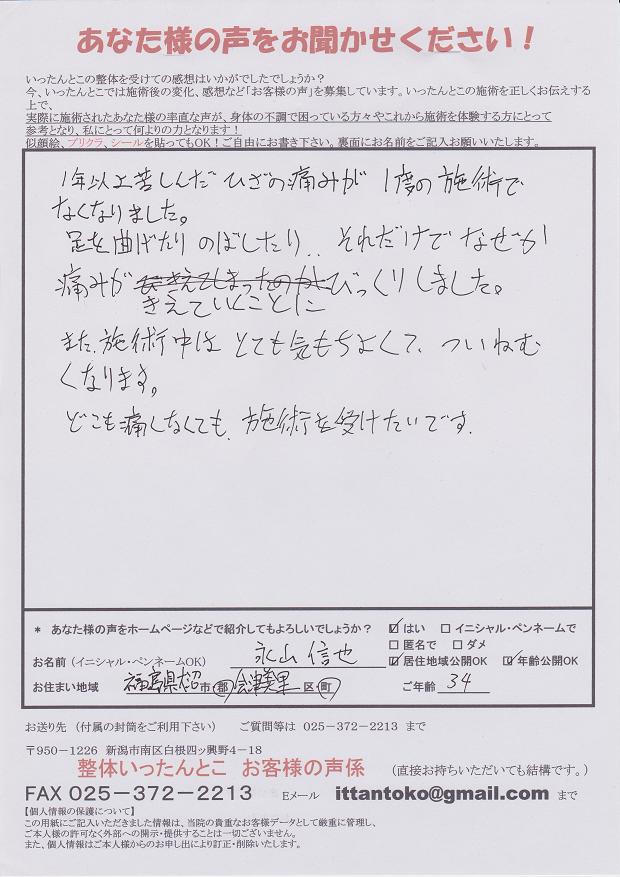 あなた様の声をお聞かせください！
いったんとこの整体を受けての感想はいかがでしたでしょうか？
今、いったんとこでは施術後の変化、感想など「お客様の声」を募集しています。いったんとこの施術を正しくお伝えする
上で、
実際に施術されたあなた様の率直な声が、身体の不調で困っている方々やこれから施術を体験する方にとって
参考となり、私にとって何よりの力となります！
似顔絵、プリクラ、シールを貼ってもOK！ご自由にお書き下さい。裏面にお名前をご記入お願いいたします。
1年以上苦しんだ ひざの痛みが 1度の施術で
なくなりました。
足を曲げたり のばしたり、、それだけで なぜか
痛みが びっくりしました。
きえていくことに
また、施術中は とても気もちよくて、ついねむ
くなります。
どこも痛しなくても、施術を受けたいです。
* あなた様の声をホームページなどで紹介してもよろしいでしょうか？ ☑ はい □ イニシャル・ペンネームで
□ 匿名で □ ダメ
お名前（イニシャル・ペンネームOK） 永山 信也 ☑ 居住地域公開OK ☑ 年齢公開OK
お住まい地域 福島県大沼 市 郡 会津美里 区・町 ご年齢 34
お送り先 （付属の封筒をご利用下さい） ご質問等は 025－372－2213 まで
〒950－1226 新潟市南区白根四ッ興野4－18
整体いったんとこ お客様の声係 （直接お持ちいただいても結構です。）
FAX 025－372－2213 Eメール ittantoko@gmail.com まで
【個人情報の保護について】
この用紙にご記入いただきました情報は、当院の貴重なお客様データとして厳重に管理し、
ご本人様の許可なく外部への開示・提供することは一切ございません。
また、個人情報はご本人様からのお申し出により訂正・削除いたします。